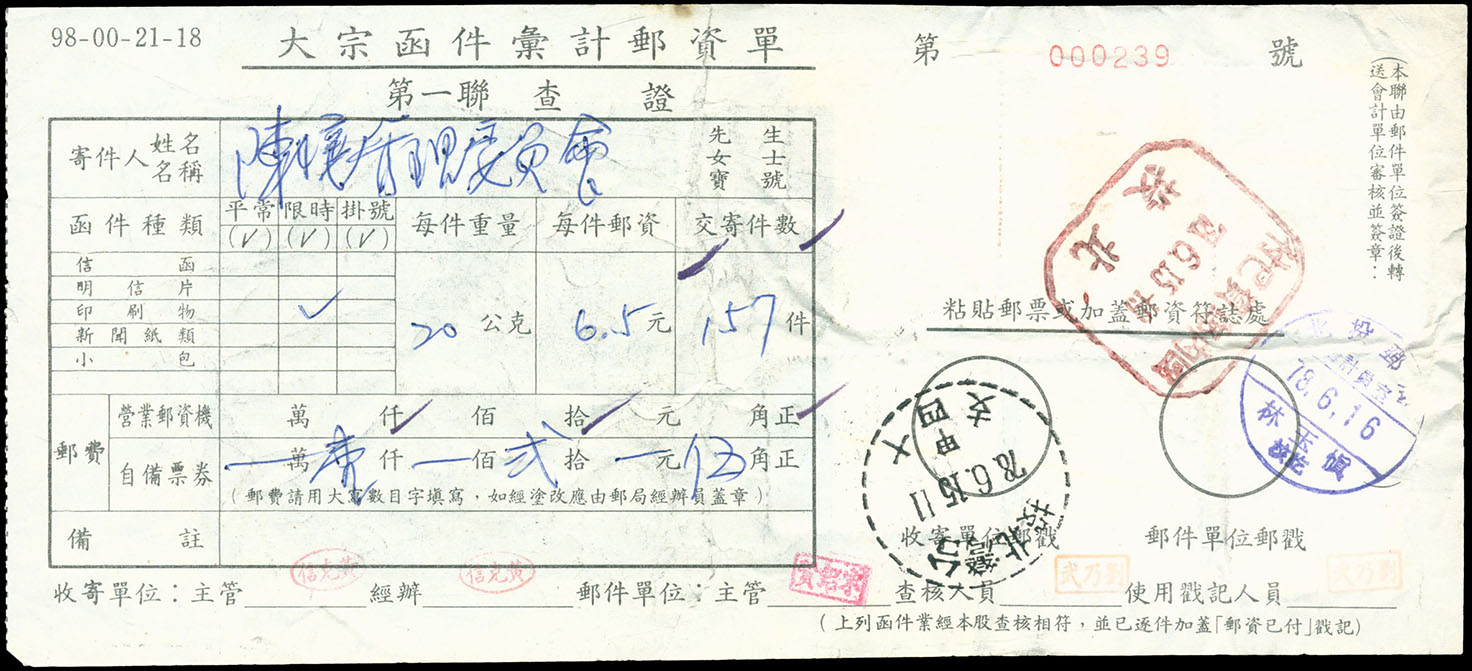 98-00-21-18
大宗函件彙計郵資單
第 000239 號
第一聯 查 證
(本聯由郵件單位簽證後轉
送會計單位審核並簽章:
寄件人 姓名 名稱
管理委員會
先 生
女 士
寶 號
函件種類 平常 限時 掛號 每件重量 每件郵資 交寄件數
(√) (√) (√)
信函
明信片
印刷物 ✓ 20 公克 6.5 元 157 件
新聞紙類
小包
粘貼郵票或加蓋郵資符誌處
北投
78.6.15
國內郵資已付
郵費
營業郵資機 萬 仟 佰 拾 元 角正
自備票券 一萬壹仟一佰弍拾一元伍角正
(郵費請用大寫數目字填寫,如經塗改應由郵局經辦員蓋章)
備註
78.6.15.11
北投
78.6.16
林玉
收寄單位郵戳
郵件單位郵戳
黃克信
黃克信
劉乃武
劉乃武
收寄單位:主管 經辦 郵件單位:主管 查核人員 使用戳記人員
(上列函件業經本股查核相符,並已逐件加蓋「郵資已付」戳記)